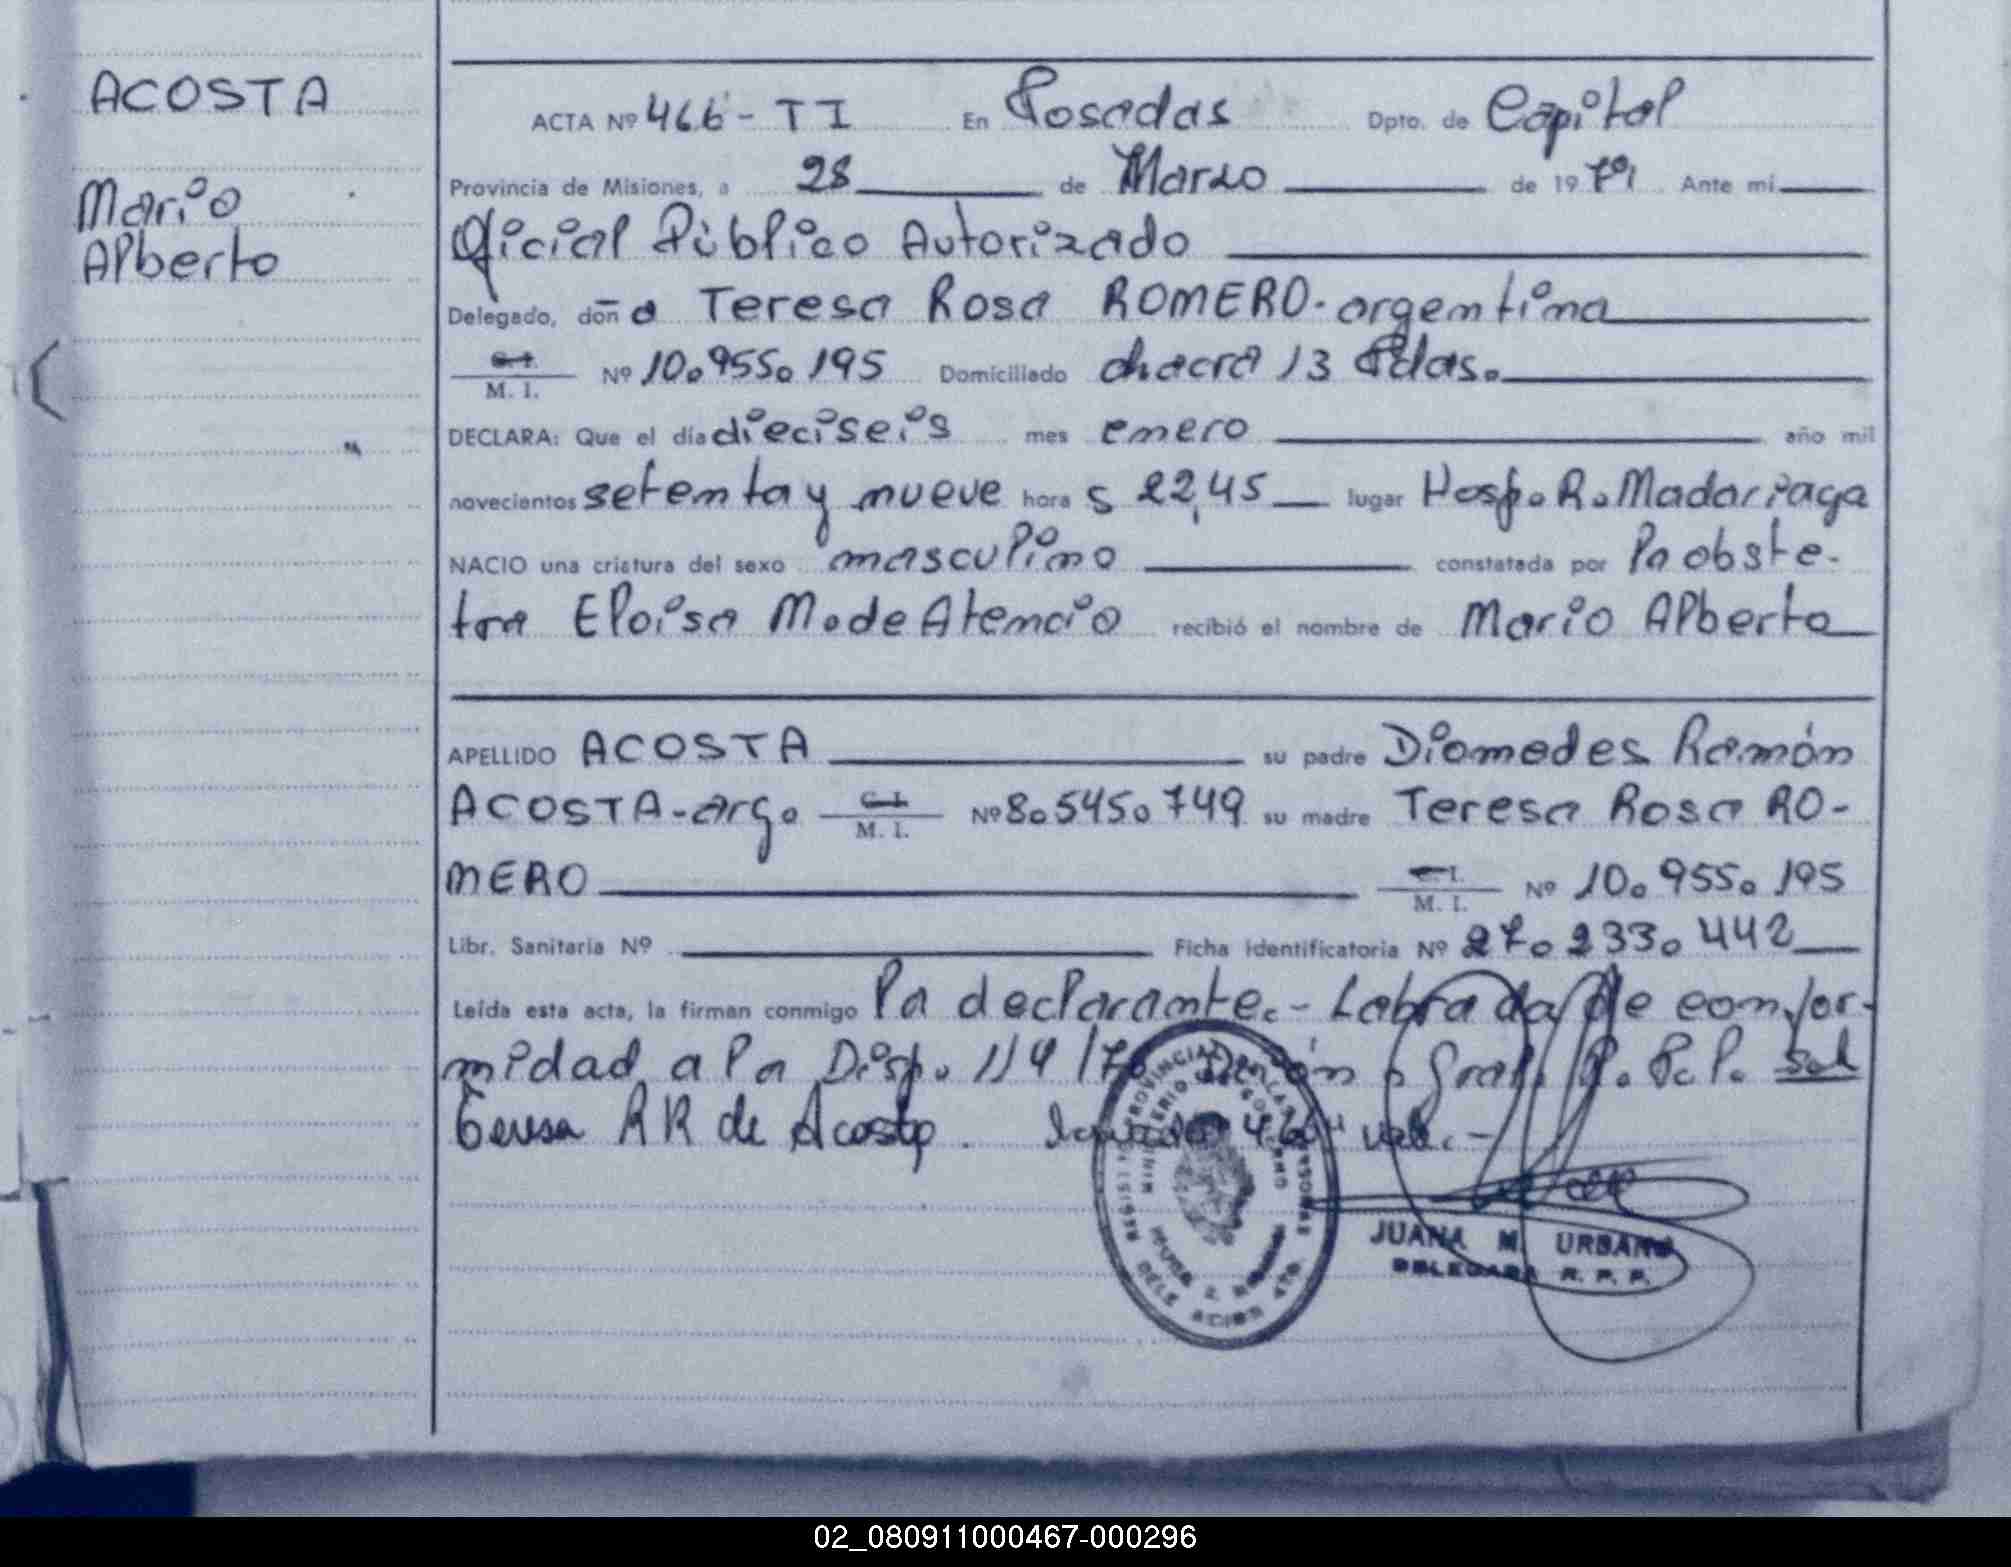 ACOSTA
Mario
Alberto
ACTA Nº 466 - T I En Posadas Dpto. de Capital
Provincia de Misiones, a 28 de Marzo de 19 79 Ante mi
Oficial Público Autorizado
Delegado, doña Teresa Rosa ROMERO - argentina
C. I.
M. I. Nº 10.955.195 Domiciliado chacra 13 Pdas.
DECLARA: Que el día dieciseis mes enero año mil
novecientos setenta y nueve hora s 22,45 lugar Hosp. R. Madariaga
NACIO una criatura del sexo masculino constatada por la obste-
tra Eloisa M. de Atencio recibió el nombre de Mario Alberto
APELLIDO ACOSTA su padre Diomedes Ramón
ACOSTA - arg. C. I. M. I. Nº 8.545.749 su madre Teresa Rosa RO-
MERO C. I. M. I. Nº 10.955.195
Libr. Sanitaria Nº Ficha Identificatoria Nº 27.233.442
Leída esta acta, la firman conmigo la declarante. - Labrada de confor-
midad a la Disp. 114/78 Gral. R. P. P.
Teresa R R de Acosta. 466 vale. -
JUANA M. URBANO
DELEGADA R. P. P.
02_080911000467-000296